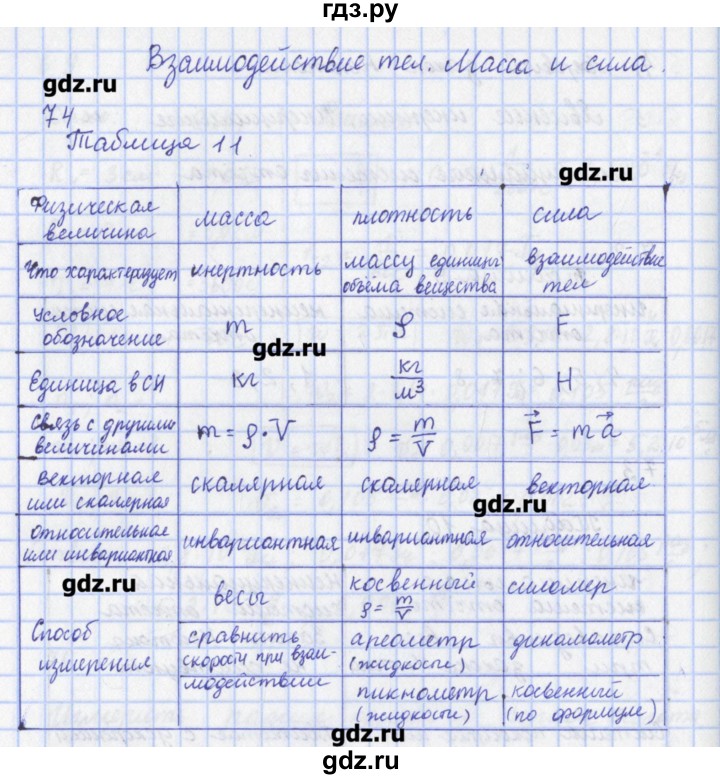 гдз.ру
Взаимодействие тел. Масса и сила.
gdz.ru
74
Таблица 11
gdz.ru
Физическая величина масса плотность сила
Что характеризует инертность массу единицы объёма вещества взаимодействие тел
Условное обозначение m ρ F
gdz.ru
Единица в СИ кг кг/м³ Н
Связь с другими величинами m = ρ·V ρ = m/V F⃗ = m a⃗
Векторная или скалярная скалярная скалярная векторная
gdz.ru
относительная или инвариантная инвариантная инвариантная относительная
gdz.ru
Способ измерения весы косвенный ρ = m/V силомер
сравнить скорости при взаимодействии ареометр (жидкости) динамометр
пикнометр (жидкости) косвенный (по формуле)
gdz.ru
gdz.ru